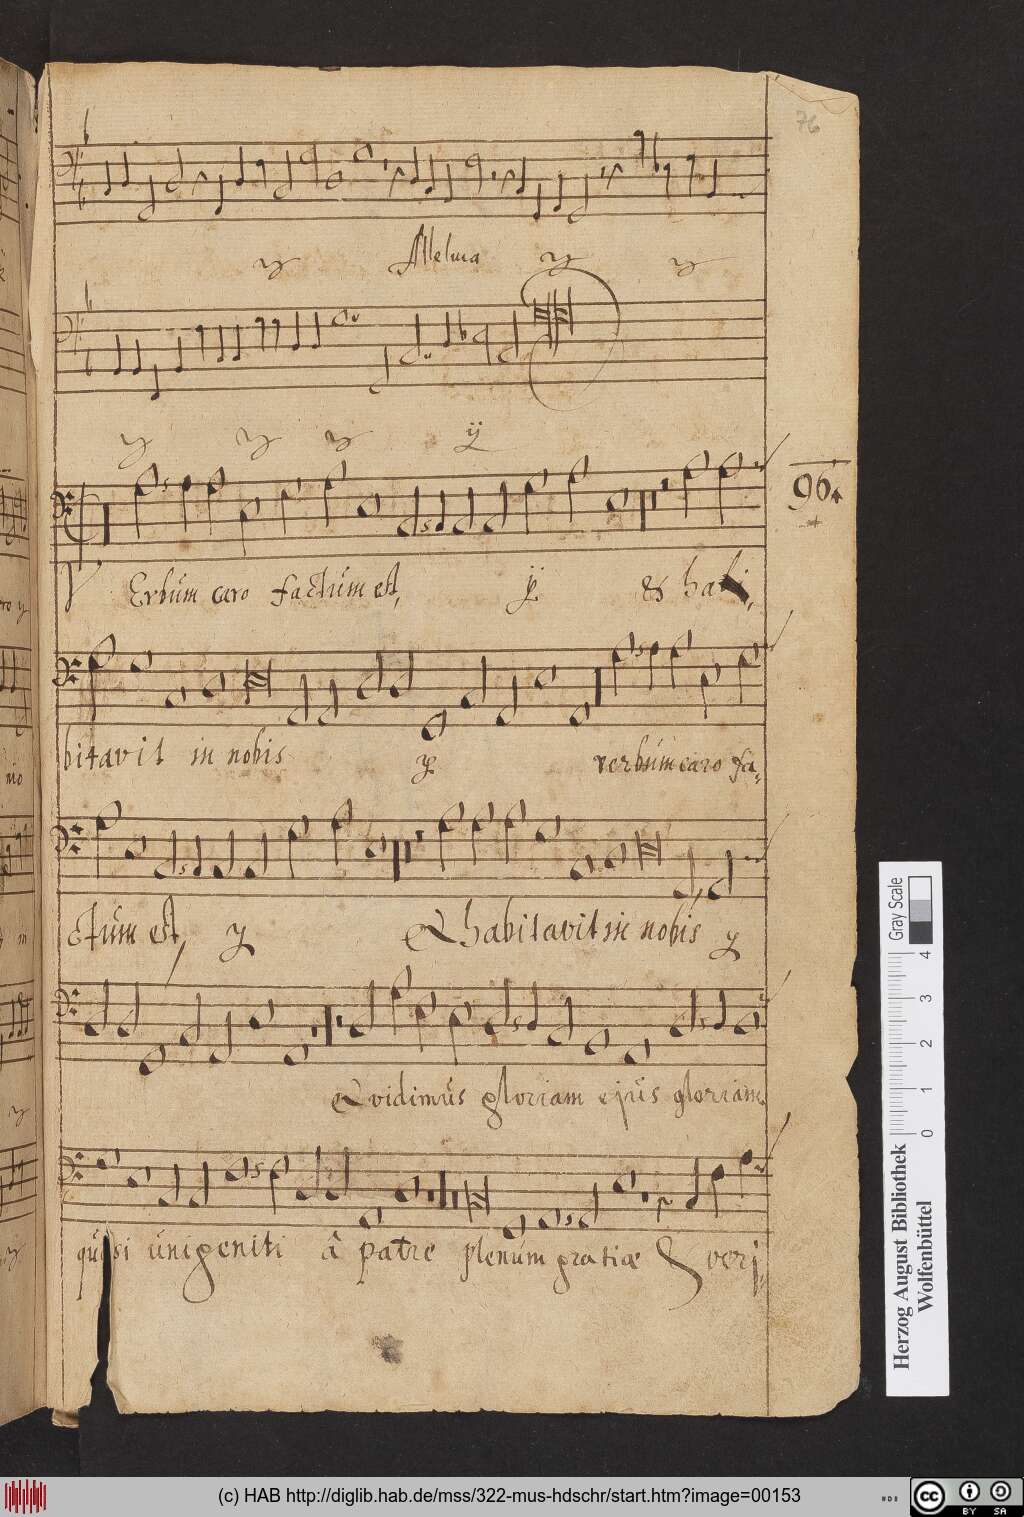 76
Alleluia
ij
96.
Verbum caro factum est, ij & habi,
bitavit in nobis ij verbum caro fa,
ctum est, ij & habitavit in nobis ij
& vidimus gloriam ejus gloriam
quasi unigeniti â patre plenum gratiæ & veri,
Gray Scale
0 1 2 3 4
Herzog August Bibliothek
Wolfenbüttel
(c) HAB http://diglib.hab.de/mss/322-mus-hdschr/start.htm?image=00153
cc BY SA